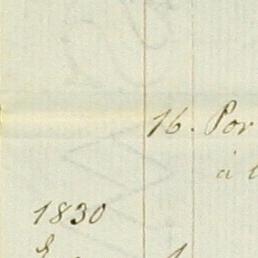 16. Por
à l
1830